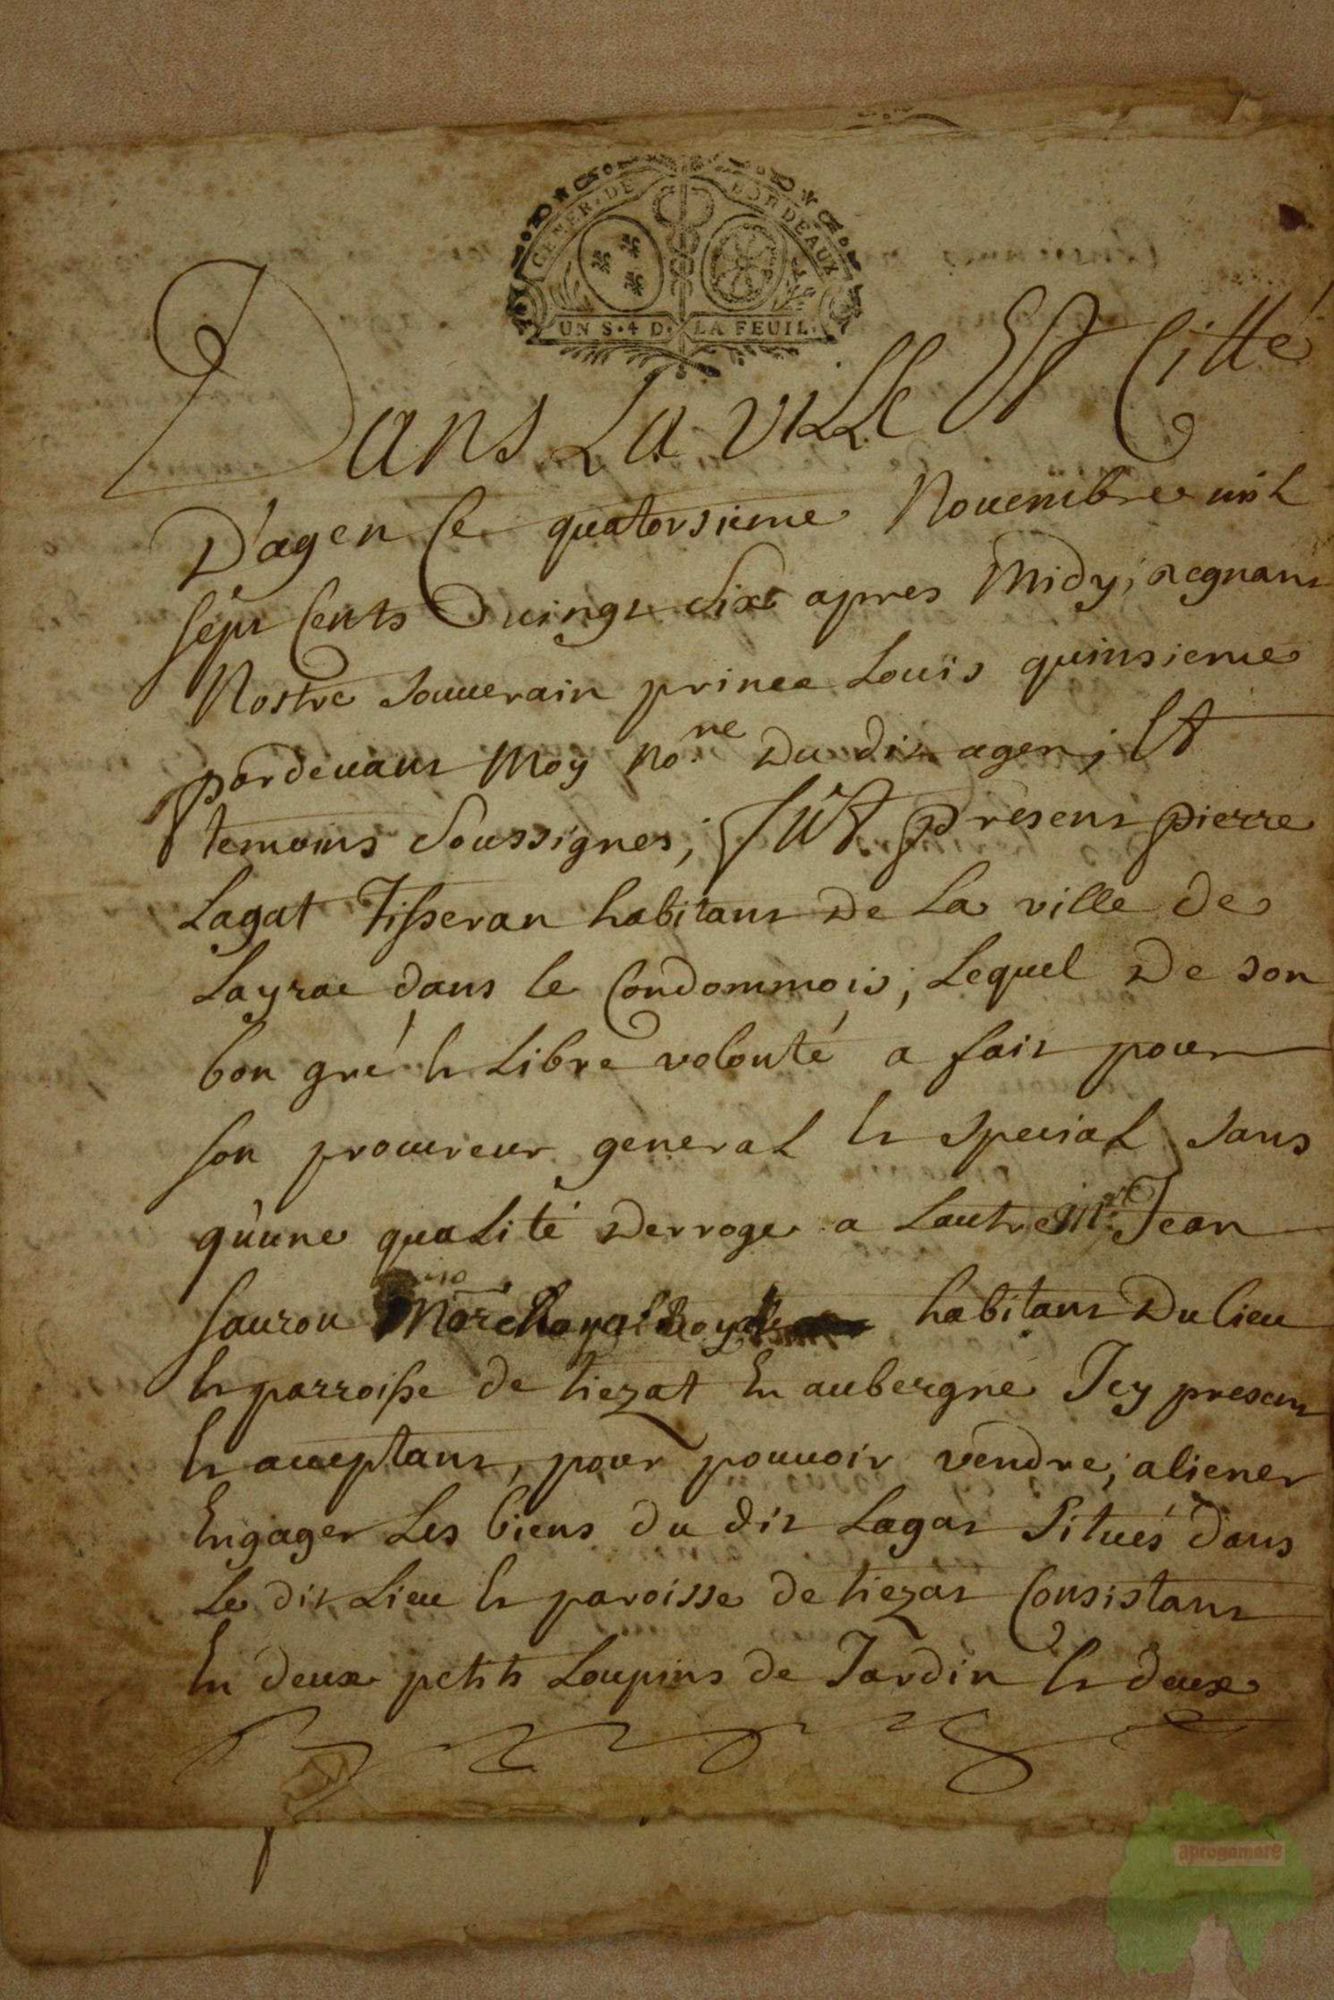 GENER. DE BORDEAUX
UN S. 4 D. LA FEUIL.
Dans La ville Et Citté
D'agen Ce quatorsieme Nouembre mil
sept Cents vingt Six apres Midy, regnant
Nostre Souuerain prince Louis quinsieme
pardeuant Moy No.re du dit agen, Et
temoins Soussignes, fût present pierre
Lagat Tisseran habitant de La ville de
Layrac dans le Condommois, Lequel de son
bon gré et Libre volonté a fait pour
son procureur general et special sans
qu'une qualité derroge a Lautre Mre Jean
Sauron habitant du lieu
et parroisse de tiezat En aubergne Icy present
et acceptant, pour pouuoir vendre, aliener
Engager Les biens du dit Lagat Situés dans
Le dit Lieu et paroisse de tiezat Consistant
En deux petits Loupins de Jardin et deux
aprogemere